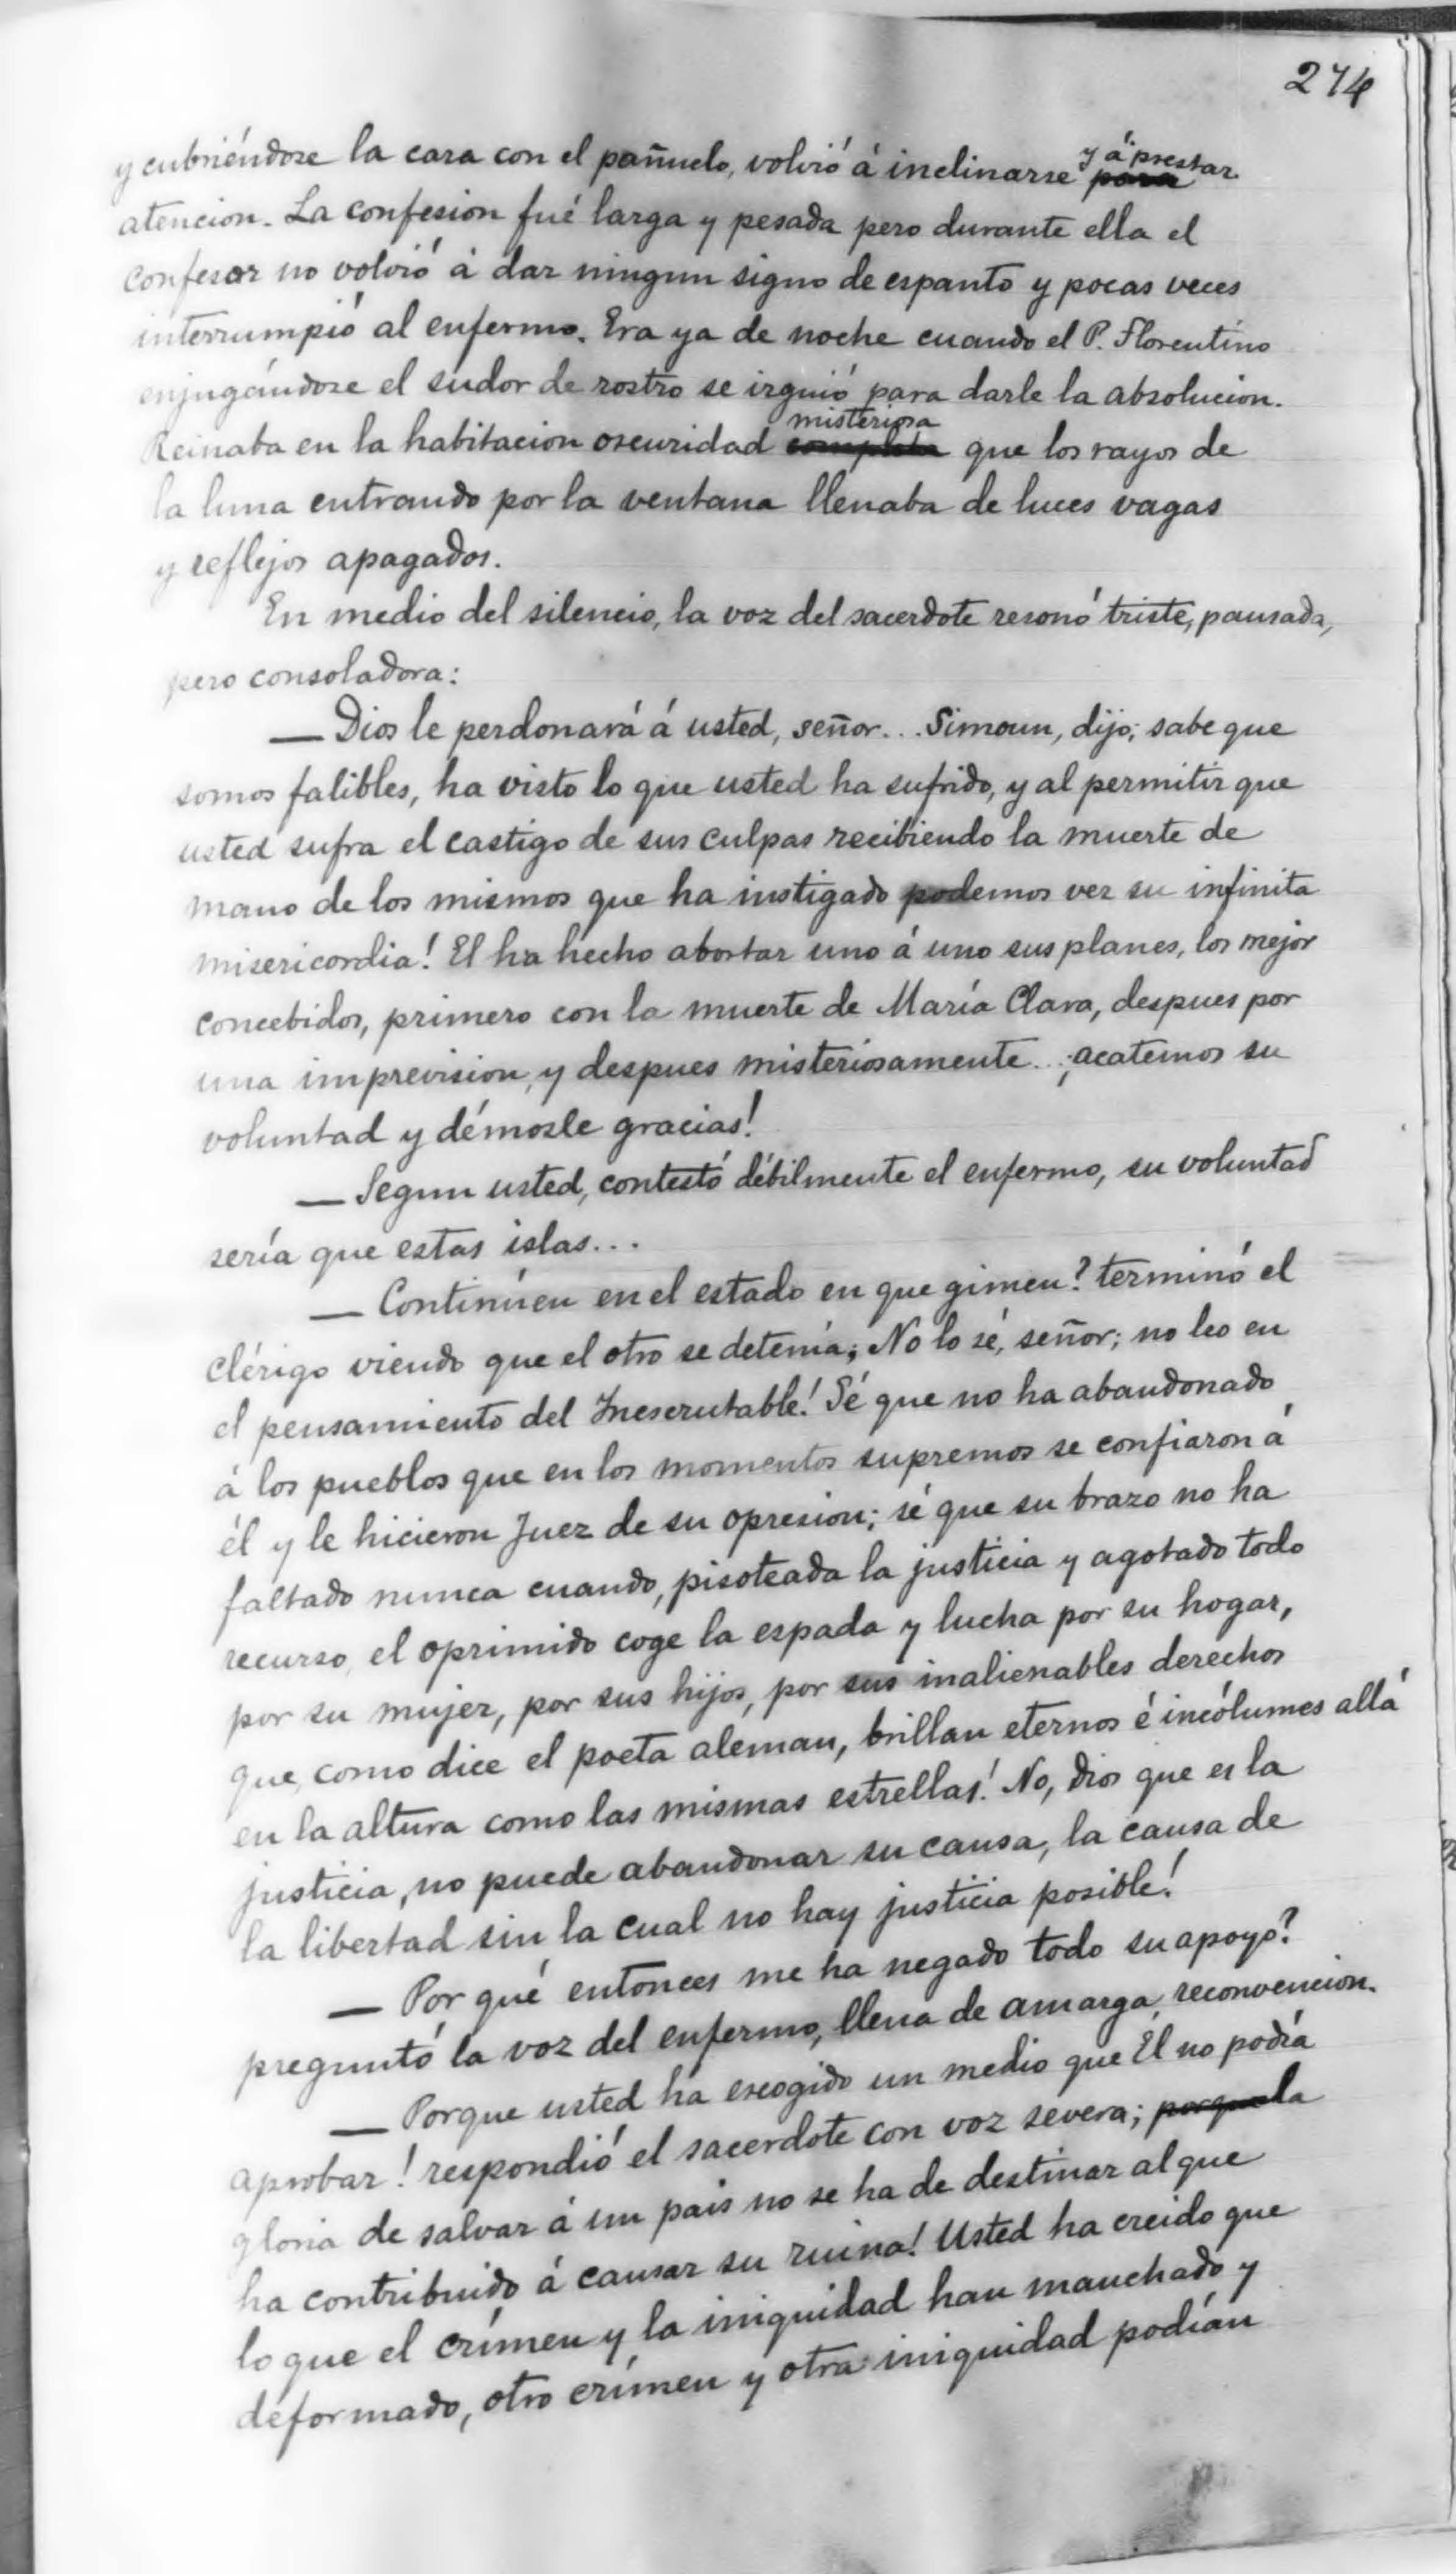 274
y cubriéndose la cara con el pañuelo, volvió á inclinarse para y á prestar
atencion. La confesion fué larga y pesada pero durante ella el
confesor no volvió á dar ningun signo de espanto y pocas veces
interrumpió al enfermo. Era ya de noche cuando el P. Florentino
enjugándose el sudor de rostro se irguió para darle la absolucion.
Reinaba en la habitacion oscuridad completa misteriosa que los rayos de
la luna entrando por la ventana llenaba de luces vagas
y reflejos apagados.
En medio del silencio, la voz del sacerdote resonó triste, pausada,
pero consoladora:
— Dios le perdonará á usted, señor... Simoun, dijo; sabe que
somos falibles, ha visto lo que usted ha sufrido, y al permitir que
usted sufra el castigo de sus culpas recibiendo la muerte de
mano de los mismos que ha instigado podemos ver su infinita
misericordia! El ha hecho abortar uno á uno sus planes, los mejor
concebidos, primero con la muerte de María Clara, despues por
una imprevision, y despues misteriosamente... ¡acatemos su
voluntad y démosle gracias!
— Segun usted, contestó débilmente el enfermo, su voluntad
sería que estas islas...
— Continúen en el estado en que gimen? terminó el
clérigo viendo que el otro se detenía; No lo sé, señor; no leo en
el pensamiento del Inescrutable! Sé que no ha abandonado
á los pueblos que en los momentos supremos se confiaron á
él y le hicieron Juez de su opresion; sé que su brazo no ha
faltado nunca cuando, pisoteada la justicia y agotado todo
recurso, el oprimido coge la espada y lucha por su hogar,
por su mujer, por sus hijos, por sus inalienables derechos
que, como dice el poeta aleman, brillan eternos é incólumes allá
en la altura como las mismas estrellas! No, Dios que es la
justicia, no puede abandonar su causa, la causa de
la libertad sin la cual no hay justicia posible!
— Por qué entonces me ha negado todo su apoyo?
preguntó la voz del enfermo, llena de amarga reconvencion.
— Porque usted ha escogido un medio que El no podía
aprobar! respondió el sacerdote con voz severa; porque la
gloria de salvar á un pais no se ha de destinar al que
ha contribuido á causar su ruina! Usted ha creido que
lo que el crímen y la iniquidad han manchado y
deformado, otro crímen y otra iniquidad podían